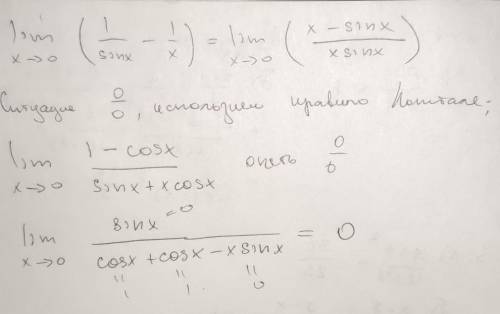 lim x→0 (1/sinx − 1/x) = lim x→0 (x − sinx / x sinx)
Ситуация 0/0, используем правило Лопиталя;
lim x→0 1 − cosx / sinx + x cosx опять 0/0
lim x→0 sinx =0 / cosx + cosx − x sinx = 0
" " "
1 1 0